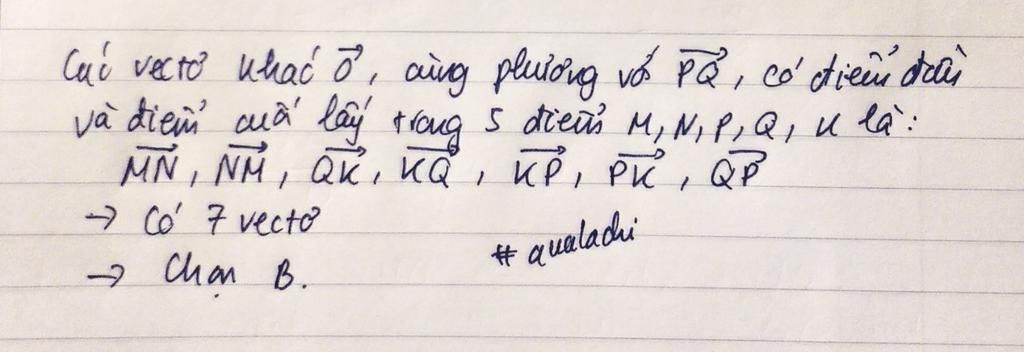 Các vectơ khác 0⃗, cùng phương với PQ⃗, có điểm đầu
và điểm cuối lấy trong 5 điểm M, N, P, Q, K là:
MN⃗, NM⃗, QK⃗, KQ⃗, KP⃗, PK⃗, QP⃗
→ Có 7 vectơ
# qualachi
→ Chọn B.